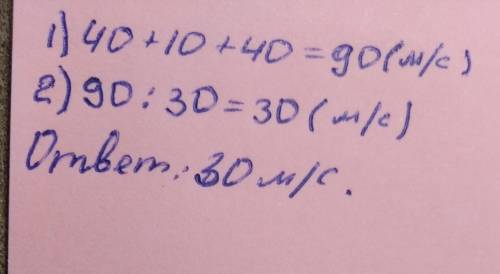 1) 40+10+40=90(м/с)
2) 90:30=30(м/с)
Ответ: 30 м/с.